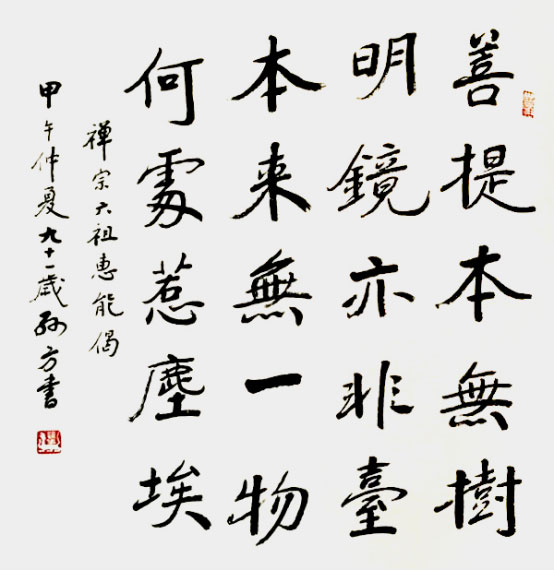 菩提本無樹
明鏡亦非臺
本来無一物
何處惹塵埃
禪宗六祖惠能偈
甲午仲夏九十一歲孙方書